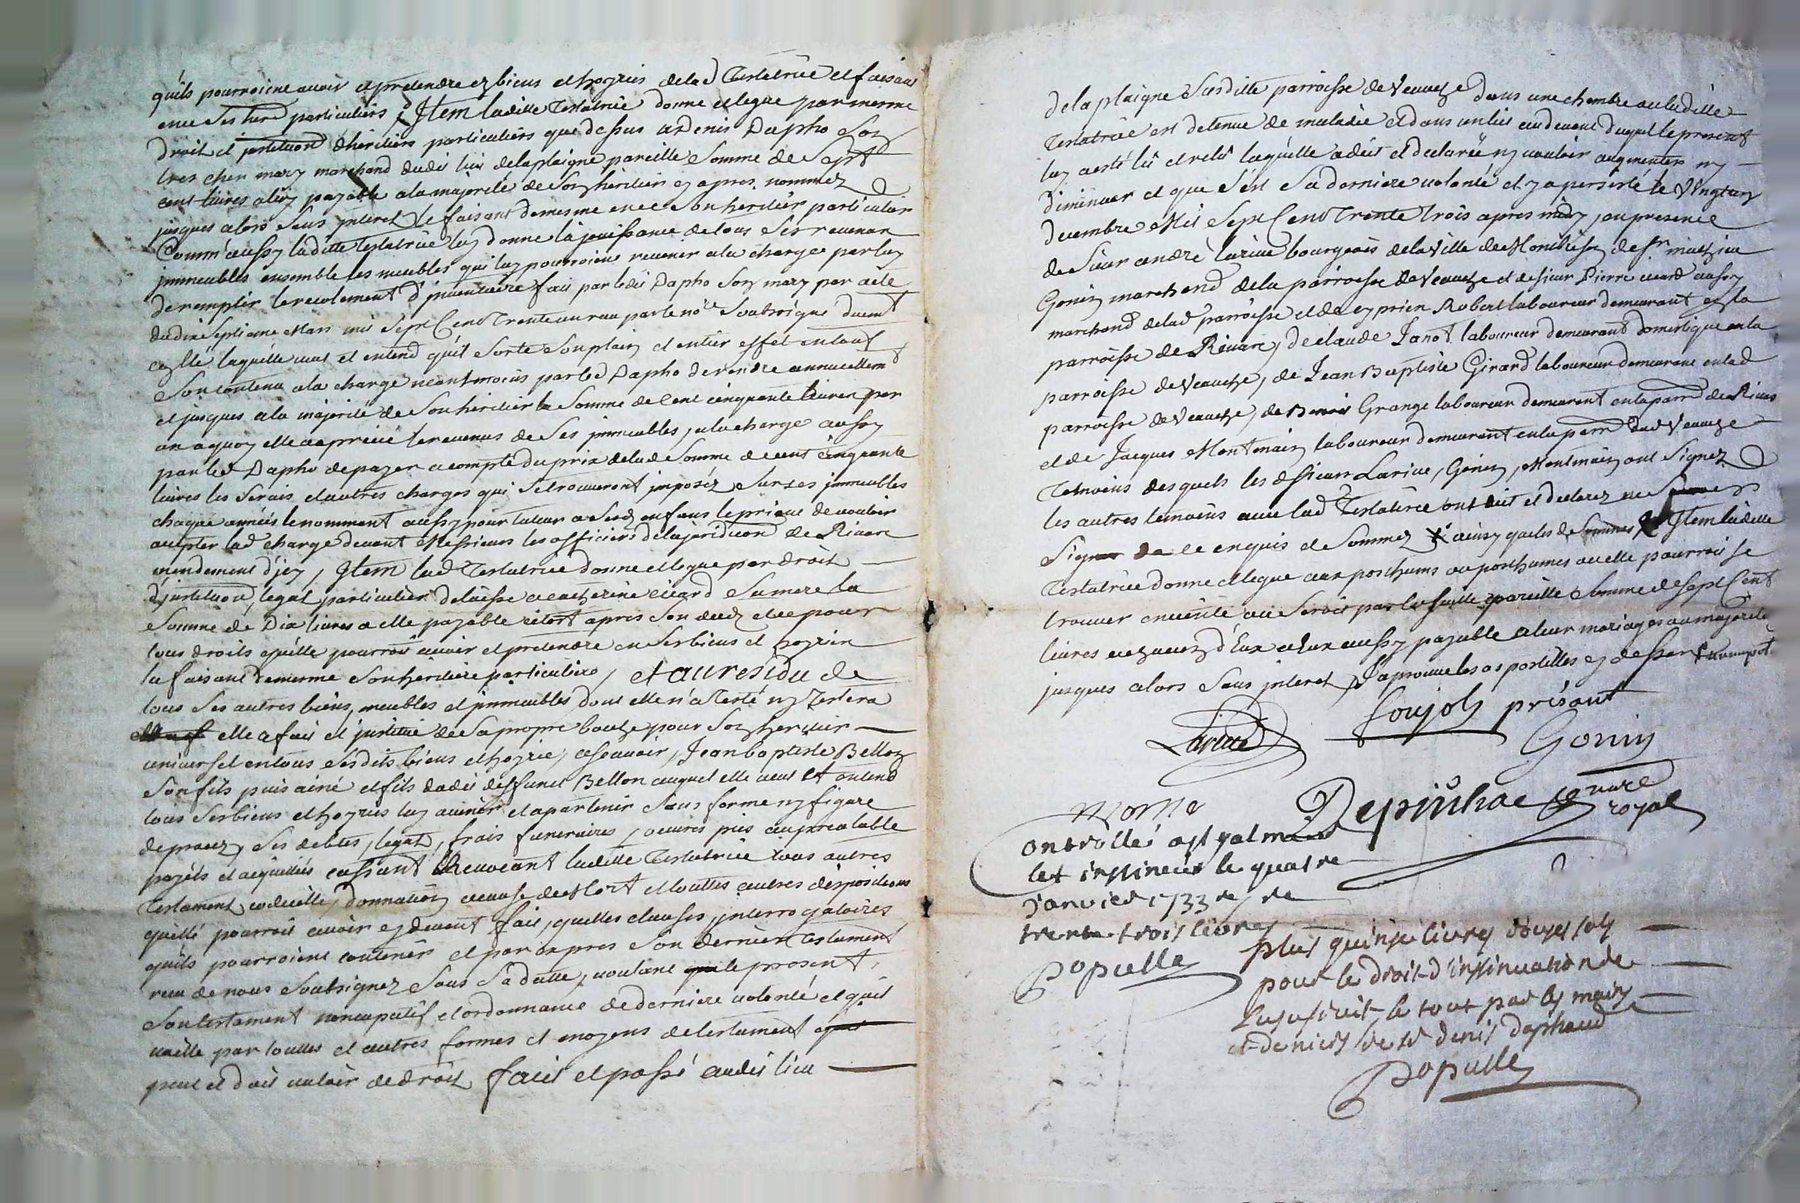 quils pourroient avoir et pretendre es biens et hoyries de lad Testatrice et faisant
ence ses her particuliers, Item laditte Testatrice donne et legue par mesme
droit et institution d'heritiers particuliers que dessus a denis Dapho son
tres cher mary marchand dudit lieu de la plaigne pareille somme de sept
cent livres a luy payable a la majorité de son heritier cy apres nommez
jusques alors sens interet le faisant de mesme en ce son heritier particulier
Comm'aussy laditte testatrice luy donne la jouissance de tous ses revenus
immeubles ensemble les meubles qui luy pourroient revenir a la charge par luy
de remplir le recolement d'inventaire fait par ledit Dapho son mary par acte
du dixseptieme Mars mil sept Cent Trente un reçu par le no.re soubsigné
laquelle veut et entend qu'il sorte son plain et entier effet en tout
son contenu a la charge neantmoins par led Dapho de rendre annuellement
et jusques a la majorité de son heritier la somme de Cent cinquante livres par
an a quoy elle a aprecié le revenus de ses immeubles, a la charge aussy
par led Dapho de payer a compte du prix de lad Somme de cent cinquante
livres les servis et autres charges qui se trouveront imposéz sur ses immeubles
chaque années le nommant aussy pour tuteur a sesd enfans le priant de vouloir
accepter lad charge devant Messieurs les officiers de la juridicon de Rivas
Item lad Testatrice donne et legue par droit
d'institution, legat particulier delaisse a catherine viard sa mere la
somme de Dix livres a elle payable sitost apres son deces et ce pour
tous droits qu'elle pourroit avoir et pretendre en ses biens et hoyrie
la faisant de mesme son heritiere particuliere, et au residu de
tous ses autres biens, meubles et immeubles dont elle n'a Testé ny Testera
elle a fait et institue de sa propre bouche pour son heritier
universel en tous sesdits biens et hoyrie, a scavoir, Jean baptiste Bellon
son fils puis ainé et fils dudit deffunct Bellon auquel elle veut et entend
tous ses biens et hoyries luy avenir et apartenir sans forme ny figure
de procez, ses debtes, legats, frais funeraires, œuvres pies au prealable
payéts et acquittés cassant & Revocant laditte Testatrice tous autres
Testament, codicille, donnation a cause de Mort et touttes autres dispositions
quelle pourroit avoir cy devant fait, quelles clauses, interrogatoires
quils pourroient contenir et par expres son dernier testament
reçu de nous soubsignez sous sa datte, voulant que le present
son testament noncupatif et ordonnance de derniere volonté et quil
vaille par touttes et autres formes et moyens de testament
peut et doit valoir de droit, fait et passé audit lieu
de la plaigne Susditte parroisse de Veauche dans une chambre ou laditte
Testatrice est detenue de maladie et dans un lit au devant duquel le present
luy a esté lû et relû laquelle a dit et declaré n'y vouloir augmenter ny
diminuer et que c'est sa derniere volonté et y a persisté le
decembre Mil Sept Cent Trente trois apres midy, en presence
de Sieur andré Larive bourgeois de la ville de Montbrison de sr
Gonin marchand de la parroisse de Veauche et de sieur Pierre viard aussy
marchand de lad parroisse et de cyprien Robert laboureur demeurant en la
parroisse de Rivas, de claude Janot laboureur demeurant domestique en la
parroisse de Veauche, de Jean Baptiste Girard laboureur demeurant en lad
parroisse de Veauche, de Benoit Grange laboureur demeurant en la parr de Rivas
et de Jacques Montmain laboureur demeurant en la parr dud Veauche
Temoins desquels les dsieur Larive, Gonin, Montmain ont Signez
les autres temoins avec lad Testatrice ont dit et declarez ne
Signer de ce enquis et Sommez Item laditte
Testatrice donne et legue aux posthums ou posthumes ou elle pourroit se
trouver enceinte ou seroit par la suitte pareille somme de sept Cent
livres a chacun d'eux a eux aussy payable a leur mariages ou majorité
jusques alors sans interet, J'aprouve les apostilles cy dessus
Larive Soujols présant
Gonin
Depinhac no.re
royal
ontrollé
et insinué le quatre
Janvier 1733
trente trois livres
Populle
plus quinse livres douse sols
pour le droit d'insinuation de
l'usufruit le tout par les mains
et deniers de sr denis daphaud
Populle